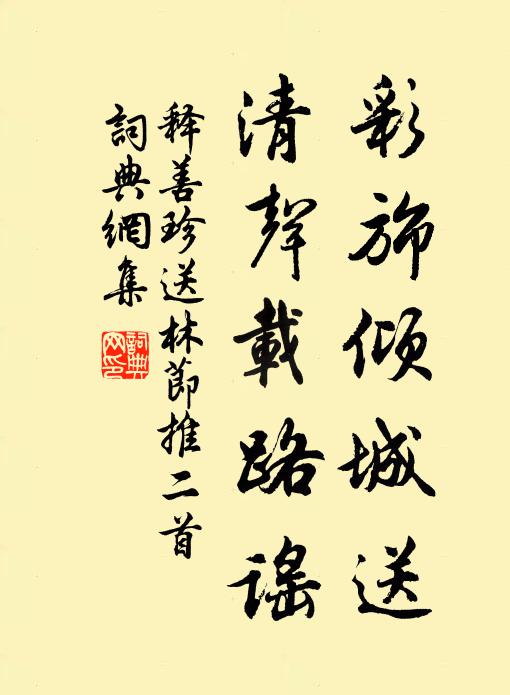 彩旆傾城送
清聲載路謠
释善珍送林節推二首
詞典網集
詞典
网印